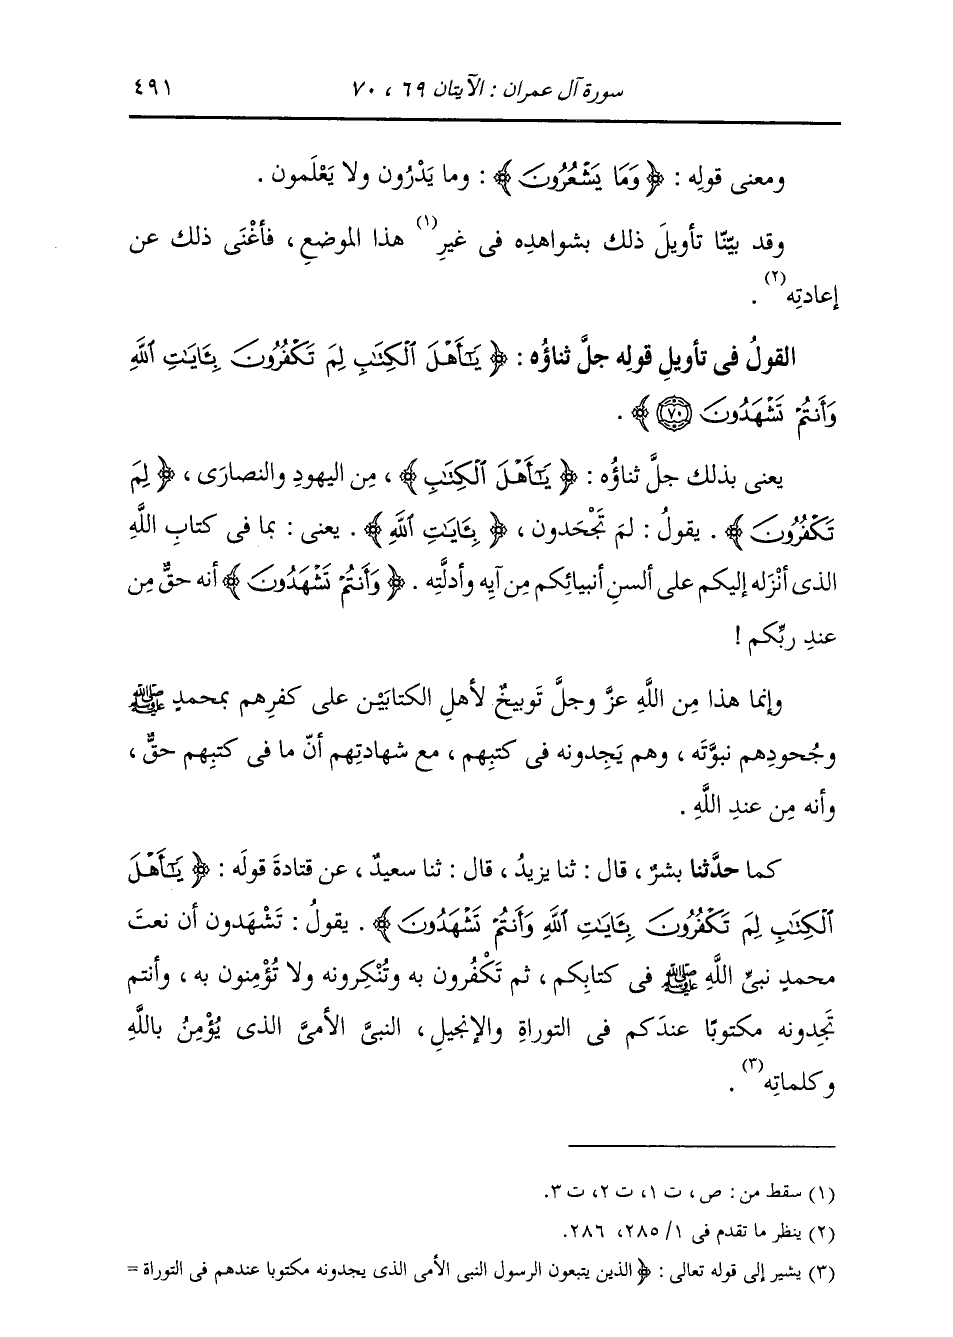 سورة آل عمران : الآيتان ٦٩ ، ٧٠
٤٩١
ومعنى قولِه : ﴿ وَمَا يَشْعُرُونَ ﴾ : وما يَدْرُون ولا يَعْلَمون .
وقد بيّنّا تأويلَ ذلك بشواهدِه فى غيرِ(١) هذا الموضعِ ، فأغْنَى ذلك عن
إعادتِه(٢) .
القولُ فى تأويلِ قوله جلَّ ثناؤُه : ﴿ يَٰٓأَهْلَ ٱلْكِتَٰبِ لِمَ تَكْفُرُونَ بِـَٔايَٰتِ ٱللَّهِ
وَأَنتُمْ تَشْهَدُونَ ﴿٧٠﴾ ﴾ .
يعنى بذلك جلَّ ثناؤُه : ﴿ يَٰٓأَهْلَ ٱلْكِتَٰبِ ﴾ ، مِن اليهودِ والنصارَى ، ﴿ لِمَ
تَكْفُرُونَ ﴾ . يقولُ : لمَ تَجْحَدون ، ﴿ بِـَٔايَٰتِ ٱللَّهِ ﴾ . يعنى : بما فى كتابِ اللَّهِ
الذى أنْزَله إليكم على ألسنِ أنبيائِكم مِن آيِه وأدلَّتِه . ﴿ وَأَنتُمْ تَشْهَدُونَ ﴾ أنه حقٌّ مِن
عندِ ربِّكم !
وإنما هذا مِن اللَّهِ عزَّ وجلَّ تَوبيخٌ لأهلِ الكتابَيْن على كفرِهم بمحمدٍ ﷺ
وجُحودِهم نبوَّتَه ، وهم يَجِدونه فى كتبِهم ، مع شهادتِهم أنّ ما فى كتبِهم حقٌّ ،
وأنه مِن عندِ اللَّهِ .
كما حدَّثنا بشرٌ ، قال : ثنا يزيدُ ، قال : ثنا سعيدٌ ، عن قتادةَ قولَه : ﴿ يَٰٓأَهْلَ
ٱلْكِتَٰبِ لِمَ تَكْفُرُونَ بِـَٔايَٰتِ ٱللَّهِ وَأَنتُمْ تَشْهَدُونَ ﴾ . يقولُ : تَشْهَدون أن نعتَ
محمدٍ نبىِّ اللَّهِ ﷺ فى كتابِكم ، ثم تَكْفُرون به وتُنْكِرونه ولا تُؤْمِنون به ، وأنتم
تَجِدونه مكتوبًا عندَكم فى التوراةِ والإنجيلِ ، النبىَّ الأمىَّ الذى يُؤْمِنُ باللَّهِ
وكلماتِه(٣) .
(١) سقط من : ص ، ت ١ ، ت ٢ ، ت ٣ .
(٢) ينظر ما تقدم فى ١/ ٢٨٥ ، ٢٨٦ .
(٣) يشير إلى قوله تعالى : ﴿ الذين يتبعون الرسول النبى الأمى الذى يجدونه مكتوبا عندهم فى التوراة =